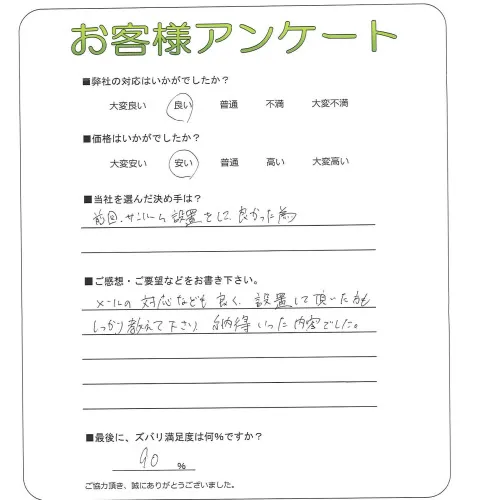 お客様アンケート
■弊社の対応はいかがでしたか？
大変良い 良い 普通 不満 大変不満
■価格はいかがでしたか？
大変安い 安い 普通 高い 大変高い
■当社を選んだ決め手は？
前回、サンルーム設置をして良かった為
■ご感想・ご要望などをお書き下さい。
メールの対応なども良く、設置して頂いた方も
しっかり教えて下さり 納得いった内容でした。
■最後に、ズバリ満足度は何%ですか？
90 %
ご協力頂き、誠にありがとうございました。